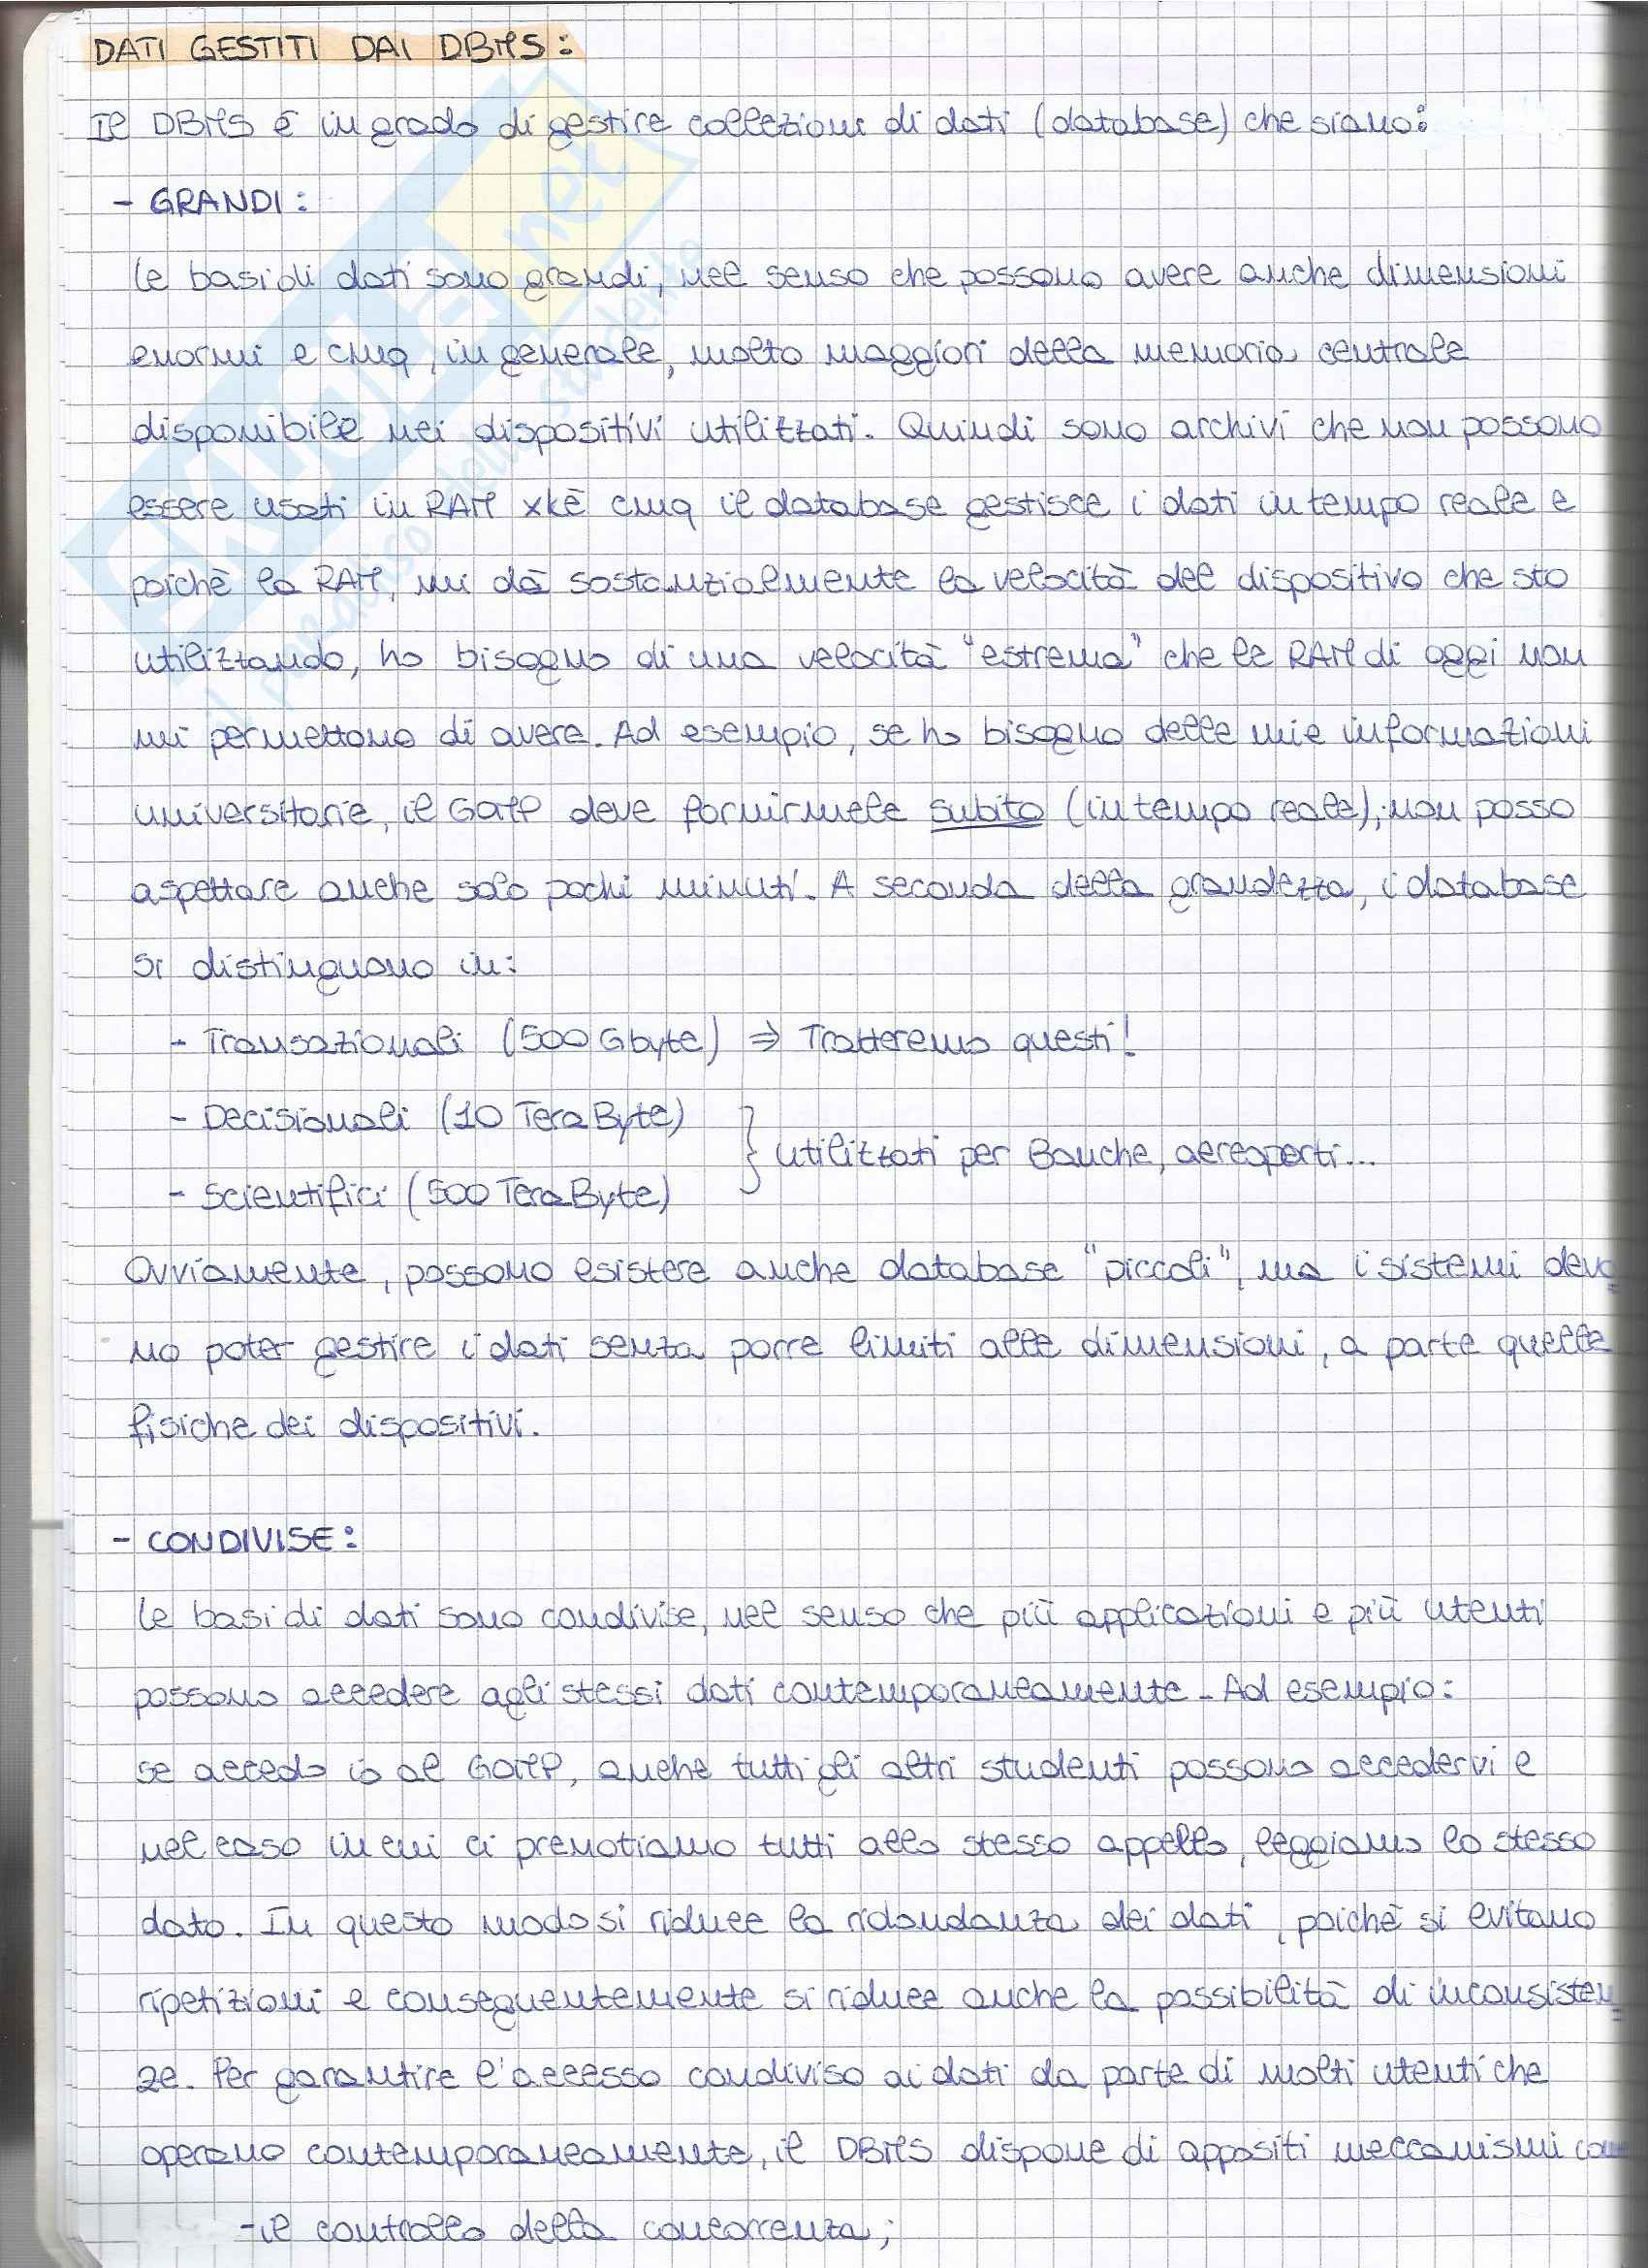 DATI GESTITI DAI DBMS:
Il DBMS è in grado di gestire collezioni di dati (database) che siano:
- GRANDI:
le basi di dati sono grandi, nel senso che possono avere anche dimensioni
enormi e cmq, in generale, molto maggiori della memoria centrale
disponibile nei dispositivi utilizzati. Quindi sono archivi che non possono
essere usati in RAM xkè cmq il database gestisce i dati in tempo reale e
poichè la RAM, mi dà sostanzialmente la velocità del dispositivo che sto
utilizzando, ho bisogno di una velocità "estrema" che le RAM di oggi non
mi permettono di avere. Ad esempio, se ho bisogno delle mie informazioni
universitarie, il GOMP deve fornirmele subito (in tempo reale); non posso
aspettare anche solo pochi minuti. A seconda della grandezza, i database
si distinguono in:
- Transazionali (500 Gbyte) ⇒ Tratteremo questi!
- Decisionali (10 TeraByte)
} utilizzati per Banche, aereoporti...
- Scientifici (500 TeraByte)
Ovviamente, possono esistere anche database "piccoli", ma i sistemi devo
no poter gestire i dati senza porre limiti alle dimensioni, a parte quelle
fisiche dei dispositivi.
- CONDIVISE:
le basi di dati sono condivise, nel senso che più applicazioni e più utenti
possono accedere agli stessi dati contemporaneamente. Ad esempio:
se accedo io al GOMP, anche tutti gli altri studenti possono accedervi e
nel caso in cui ci prenotiamo tutti allo stesso appello, leggiamo lo stesso
dato. In questo modo si riduce la ridondanza dei dati, poichè si evitano
ripetizioni e conseguentemente si riduce anche la possibilità di inconsisten
ze. Per garantire l'accesso condiviso ai dati da parte di molti utenti che
operano contemporaneamente, il DBMS dispone di appositi meccanismi
-il controllo della concorrenza;